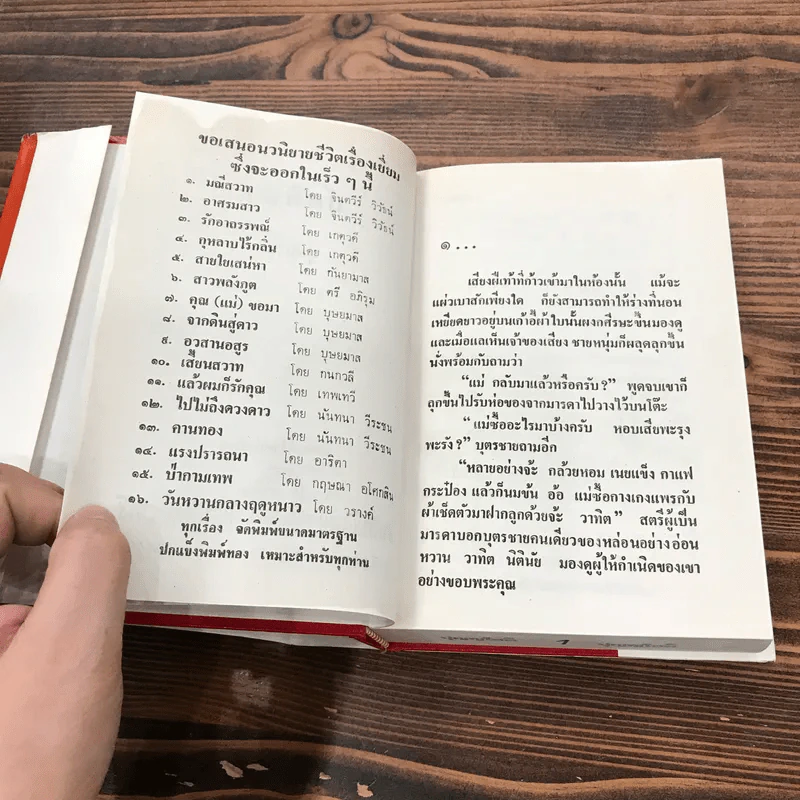 ขอเสนอนวนิยายชีวิตเรื่องเยี่ยม
ซึ่งจะออกในเร็ว ๆ นี้
๑. มณีสวาท โดย จินตวีร์ วิวัธน์
๒. อาศรมสาว โดย จินตวีร์ วิวัธน์
๓. รักอาถรรพณ์ โดย เกตุวดี
๔. กุหลาบไร้กลิ่น โดย เกตุวดี
๕. สายใยเสน่หา โดย กันยามาส
๖. สาวพลังภูต โดย ตรี อภิรุม
๗. คุณ (แม่) ขอมา โดย บุษยมาส
๘. จากดินสู่ดาว โดย บุษยมาส
๙. อวสานอสูร โดย บุษยมาส
๑๐. เสี้ยนสวาท โดย กนกวลี
๑๑. แล้วผมก็รักคุณ โดย เทพเทวี
๑๒. ไปไม่ถึงดวงดาว โดย นันทนา วีระชน
๑๓. คานทอง โดย นันทนา วีระชน
๑๔. แรงปรารถนา โดย อาริตา
๑๕. ป่ากามเทพ โดย กฤษณา อโศกสิน
๑๖. วันหวานกลางฤดูหนาว โดย วรางค์
ทุกเรื่อง จัดพิมพ์ขนาดมาตรฐาน
ปกแข็งพิมพ์ทอง เหมาะสำหรับทุกท่าน
๑ . . .
เสียงฝีเท้าที่ก้าวเข้ามาในห้องนั้น แม้จะ
แผ่วเบาสักเพียงใด ก็ยังสามารถทำให้ร่างที่นอน
เหยียดยาวอยู่บนเก้าอี้ผ้าใบนั้นผงกศีรษะขึ้นมองดู
และเมื่อแลเห็นเจ้าของเสียง ชายหนุ่มก็ผลุดลุกขึ้น
นั่งพร้อมกับถามว่า
“แม่ กลับมาแล้วหรือครับ?” พูดจบเขาก็
ลุกขึ้นไปรับห่อของจากมารดาไปวางไว้บนโต๊ะ
“แม่ซื้ออะไรมาบ้างครับ หอบเสียพะรุง
พะรัง?” บุตรชายถามอีก
“หลายอย่างจ้ะ กล้วยหอม เนยแข็ง กาแฟ
กระป๋อง แล้วก็นมข้น อ้อ แม่ซื้อกางเกงแพรกับ
ผ้าเช็ดตัวมาฝากลูกด้วยจ้ะ วาทิต” สตรีผู้เป็น
มารดาบอกบุตรชายคนเดียวของหล่อนอย่างอ่อน
หวาน วาทิต นิตินัย มองดูผู้ให้กำเนิดของเขา
อย่างขอบพระคุณ
1